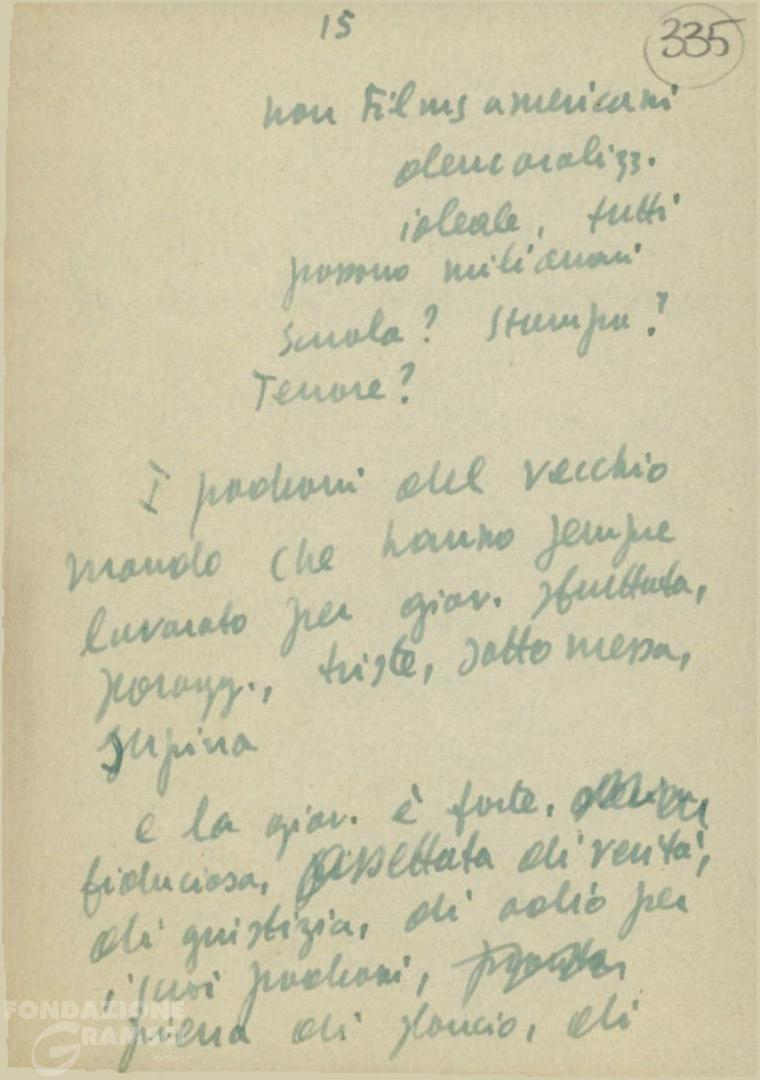 15
335
non Films americani
demoralizz.
ideale, tutti
possono milionari
Scuola? Stampa?
Terrore?
I padroni del vecchio
mondo che hanno sempre
lavorato per giov. sfruttata,
scoragg., triste, sottomessa,
supina
e la giov. è forte,
fiduciosa, assettata di verità,
di giustizia, di odio per
i suoi padroni,
piena di slancio, di
FONDAZIONE
GRAMSCI
onlus